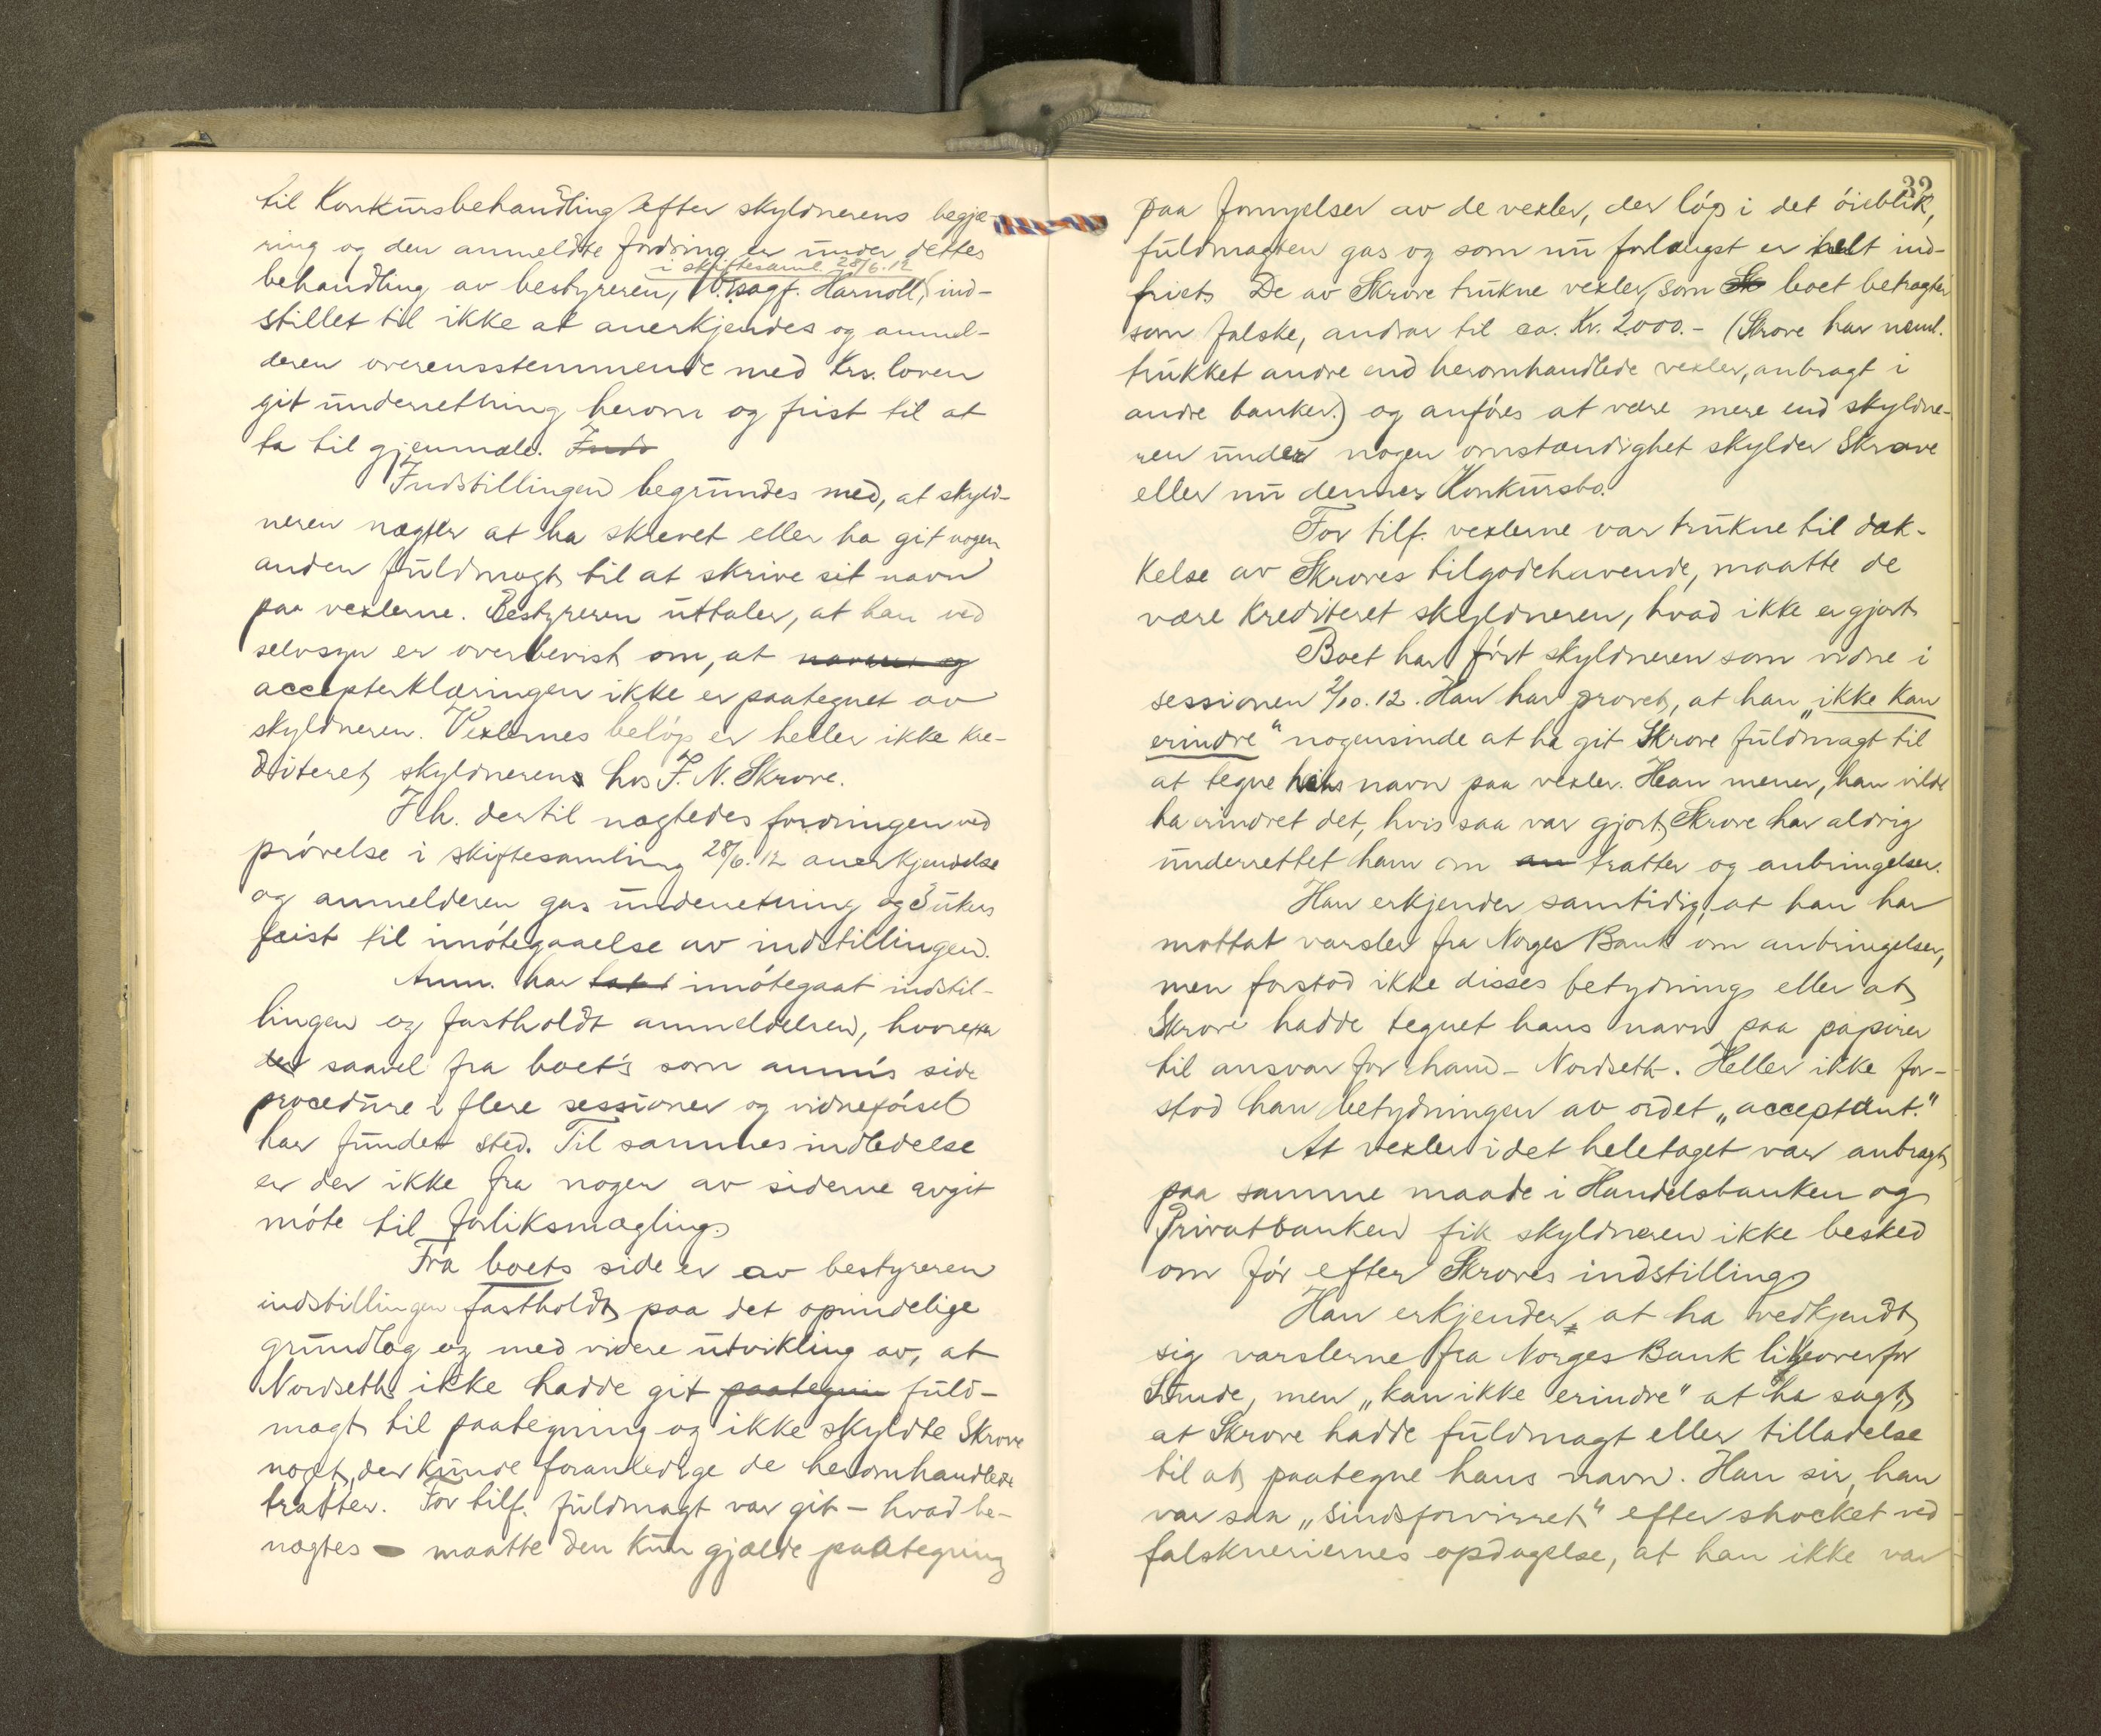 til Konkursbehandling efter skyldnerens begjæ-
ring og den anmeldte fordring er under dettes
i skiftesaml. 28/6.12
behandling av bestyreren, O.r.sagf. Harnoll, ind-
stillet til ikke at anerkjendes og anmel-
deren overensstemmende med Krs. loven
git underretning herom og frist til at
ta til gjenmæle. Inds
Indstillingen begrundes med, at skyld-
neren nægter at ha skrevet eller ha git nogen
anden fuldmagt til at skrive sit navn
paa vexlerne. Bestyreren uttaler, at han ved
selvsyn er overbevist om, at navnet og
accepterklæringen ikke er paategnet av
skyldneren. Vexlernes beløp er heller ikke kre-
diteret skyldnerens hos J. N. Skrove.
I h. dertil nægtedes fordringen ved
prøvelse i skiftesamling 28/6.12 anerkjendelse
og anmelderen gas underretning og 3 ukers
frist til imøtegaaelse av indstillingen.
Anm. har tat t imøtegaat indstil-
lingen og fastholdt anmeldelsen, hvorefter
der saavel fra boet's som anm's side
procedure i flere sessioner og vidneførsel
har fundet sted. Til sammes indledelse
er der ikke fra nogen av siderne avgit
møte til forliksmægling.
Fra boets side er av bestyreren
indstillingen fastholdt paa det oprindelige
grundlag og med videre utvikling av, at
Nordseth ikke hadde git paategnin fuld-
magt til paategning og ikke skyldte Skrove
noget, der kunde foranledige de heromhandlede
tratter. For tilf. fuldmagt var git - hvad be-
nægtes - maatte den kun gjælde paategning
32
paa fornyelser av de vexler, der løp i det øieblik,
fuldmagten gas og som nu forlængst er helt ind-
friet. De av Skrove trukne vexler, som Sk boet betragter
som falske, andrar til ca. Kr. 2000.- (Skrove har neml.
trukket andre end heromhandlede vexler, anbragt i
andre banker.) og anføres at være mere end skyldne-
ren under nogen omstændighet skylder Skrove
eller nu dennes Konkursbo.
For tilf. vexlerne var trukne til dæk-
kelse av Skroves tilgodehavende, maatte de
være krediteret skyldneren, hvad ikke er gjort.
Boet har ført skyldneren som vidne i
sessionen 2/10.12. Han har provet, at han „ikke kan
erindre" nogensinde at ha git Skrove fuldmagt til
at tegne hans navn paa vexler. Han mener, han vilde
ha erindret det, hvis saa var gjort. Skrove har aldrig
underrettet ham om an tratter og anbringelser.
Han erkjender samtidig, at han har
mottat varsler fra Norges Bank om anbringelser,
men forstod ikke disses betydning eller at
Skrove hadde tegnet hans navn paa papirer
til ansvar for ham - Nordseth -. Heller ikke for-
stod han betydningen av ordet „acceptant."
At vexler i det heletaget var anbragt
paa samme maade i Handelsbanken og
Privatbanken fik skyldneren ikke besked
om før efter Skroves indstilling.
Han erkjender, at ha vedkjendt
sig varslerne fra Norges Bank likeoverfor
Sunde, men „kan ikke erindre" at ha sagt,
at Skrove hadde fuldmagt eller tilladelse
til at paategne hans navn. Han sir, han
var saa „sindsforvirret" efter shocket ved
falskneriernes opdagelse, at han ikke var